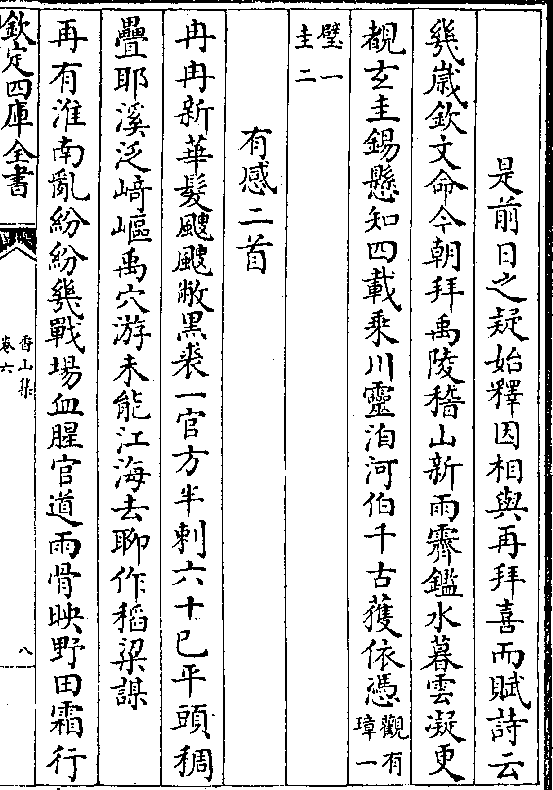 是前日之疑始釋因相與再拜喜而賦詩云
幾歲欽文命今朝拜禹陵稽山新雨霽鑑水暮雲凝更
覩玄圭錫懸知四載乘川靈洎河伯千古獲依憑觀有
璋一
璧一
圭二
有感二首
冉冉新華髮颼颼敝黒裘一官方半刺六十已平頭稠
疊耶溪泛崎嶇禹穴游未能江海去聊作稻粱謀
再有淮南亂紛紛幾戰場血腥官道雨骨映野田霜行
欽定四庫全書
香山集
卷六
八